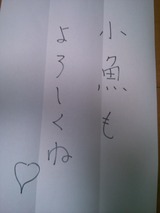 小魚も
よろしくね♡